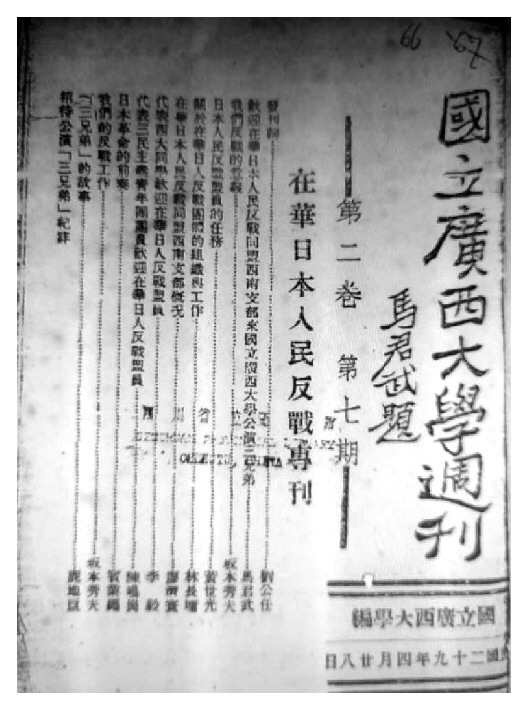 國立廣西大學週刊
馬君武題
國立廣西大學編
民國二十九年四月廿八日
第二卷 第七期
在華日本人民反戰專刊
發刊詞 劉公任
歡迎在華日本人民反戰同盟西南支部來國立廣西大學公演三兄弟 馬君武
我們反戰的意義 坂本秀夫
日本人民反戰盟員的任務 黃世光
關於在華日人反戰團體的組織與工作 林長墉
在華日本人民反戰同盟西南支部概況 廖濟寰
代表西大同學歡迎在華日人反戰盟員 李毅
代表三民主義青年團團員歡迎在華日人反戰盟員 陳鳴崗
日本革命的前奏
我們的反戰工作 坂本秀夫
「三兄弟」的故事 鹿地亘
招待公演「三兄弟」紀詳
66 67